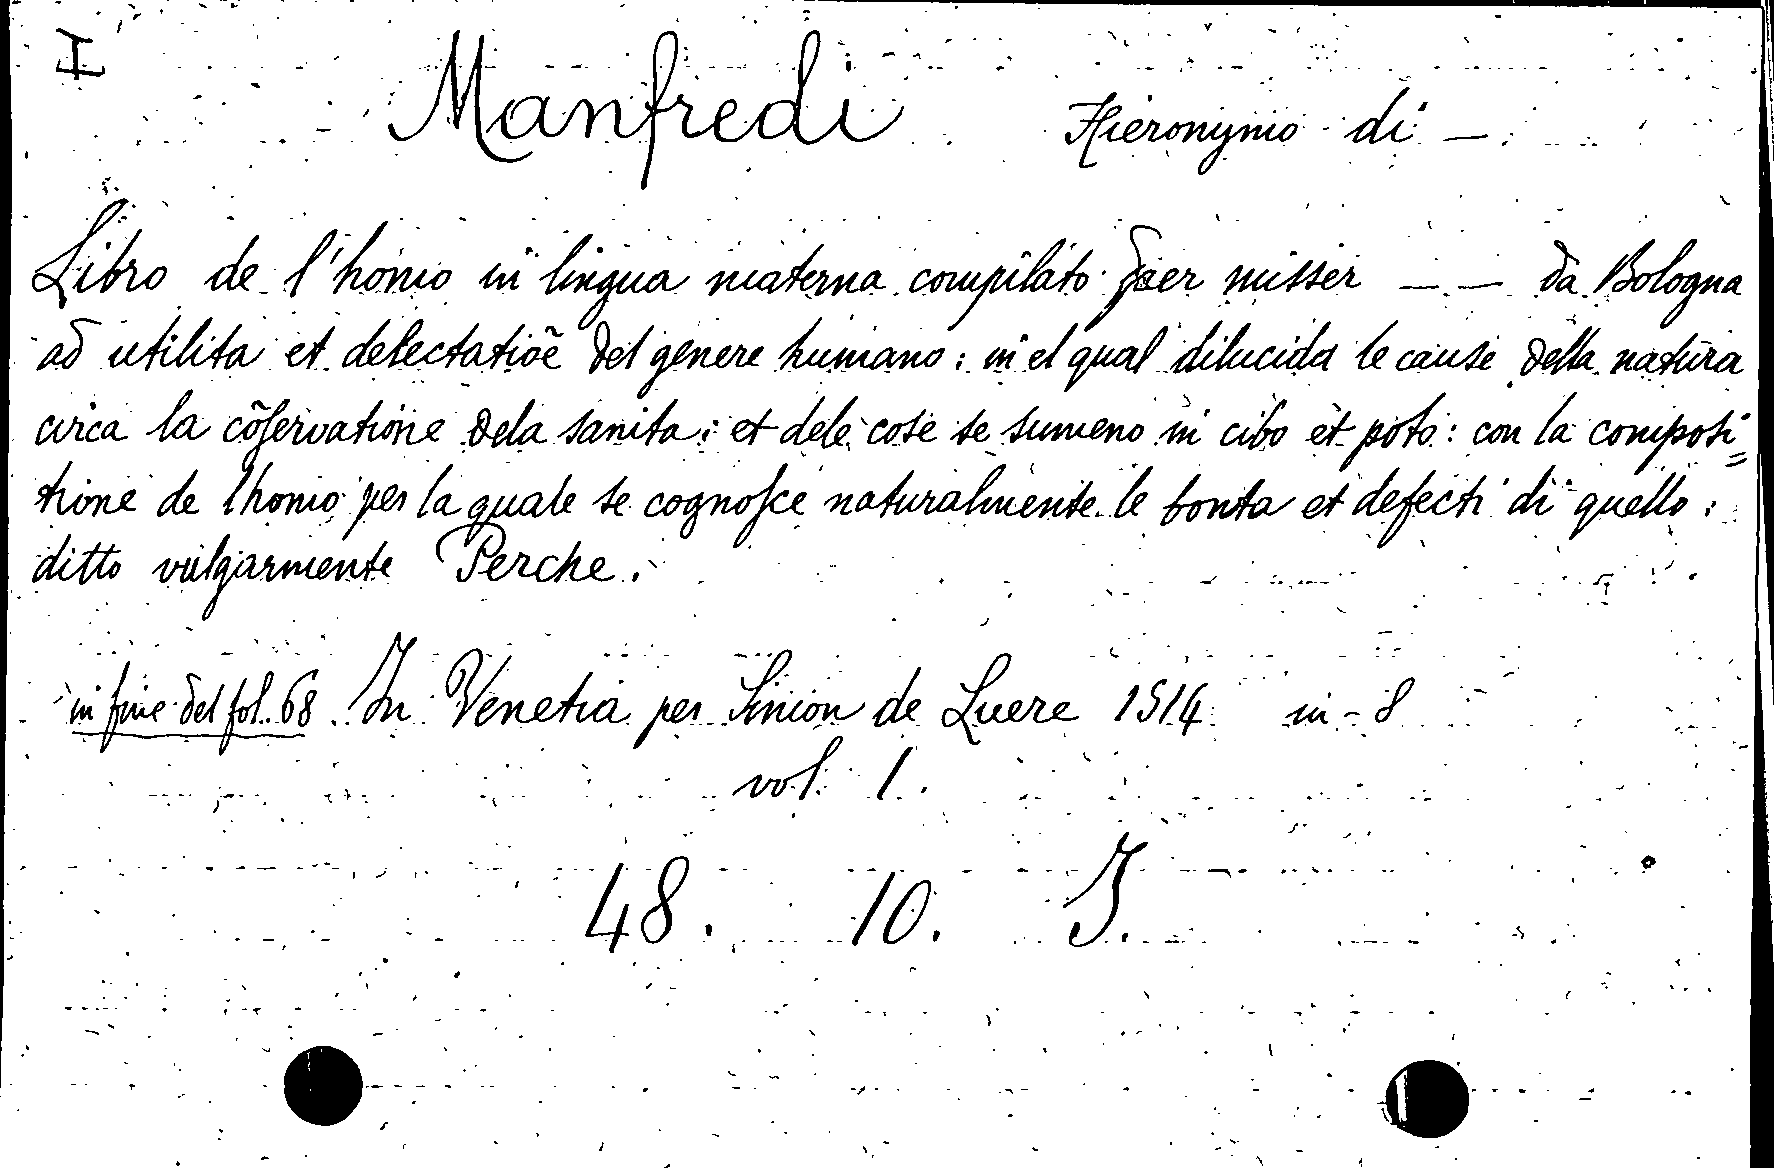 I
Manfredi Hieronymo di —
Libro de l'homo in lingua materna compilato per misser — — da Bologna
ad utilita et delectatiõe del genere humano: in el qual dilucida le cause della natura
circa la cõservatione dela sanita: et dele cose se sumeno in cibo et poto: con la composi=
tione de lhomo per la quale se cognosce naturalmente le bonta et defecti di quello:
ditto vulgarmente Perche.
in fine del fol. 68. In Venetia per Simon de Luere 1514 in-8
vol. 1.
48. 10. J.